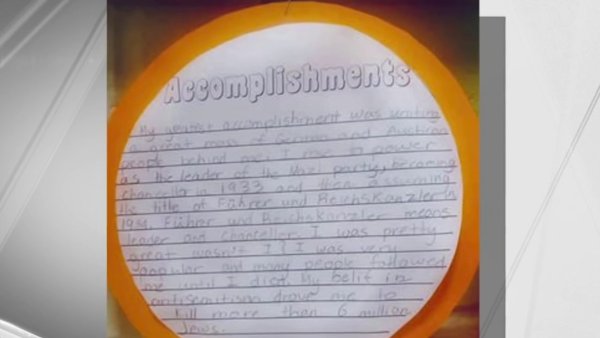 Accomplishments
My greatest accomplishment was uniting
a great mass of German and Austrian
people behind me. I rose to power
as the leader of the Nazi party, becoming
chancellor in 1933 and then assuming
the title of Führer und Reichskanzler in
1934. Führer und Reichskanzler means
leader and chancellor. I was pretty
great wasn't I? I was very
popular and many people followed
me until I died. My belif in
antisemitism drove me to
kill more than 6 million
Jews.